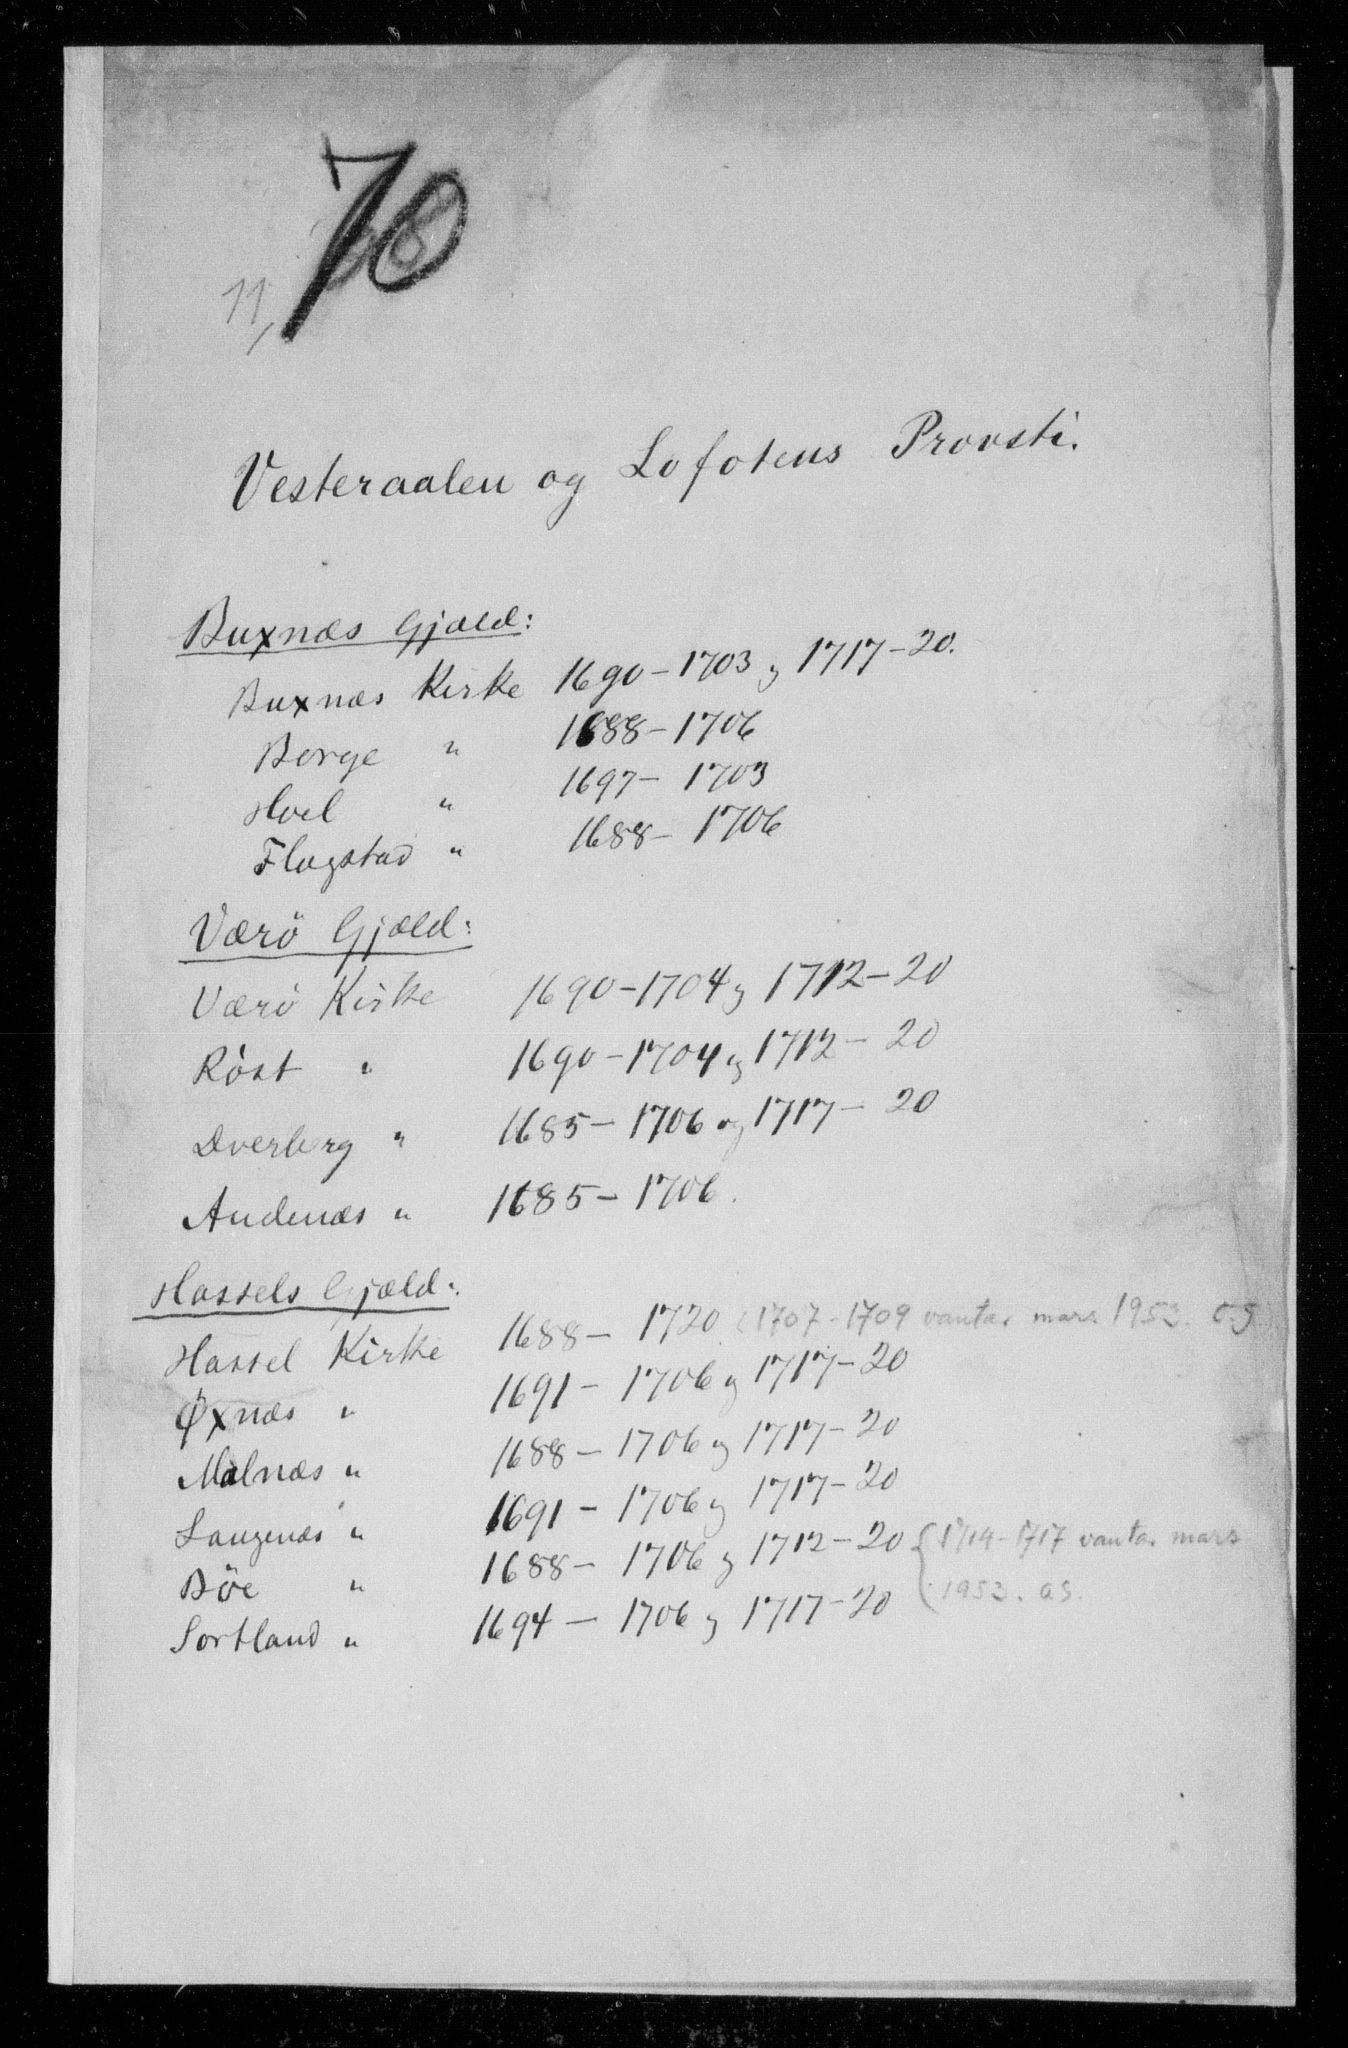 70
11,
Vesteraalen og Lofotens Provsti.
Buxnæs Gjæld:
Buxnæs Kirke 1690-1703 og 1717-20.
Borge " 1688-1706
Hoel " 1697-1703
Flagstad " 1688-1706
Værö Gjæld:
Værö Kirke 1690-1704 og 1712-20
Röst " 1690-1704 og 1712-20
Dverberg " 1685-1706 og 1717-20
Andenæs " 1685-1706.
Hassels Gjæld:
Hassel Kirke 1688-1720 (1707-1709 vantar mars 1953. OS
Øxnæs " 1691-1706 og 1717-20
Malnæs " 1688-1706 og 1717-20
Langenæs " 1691-1706 og 1717-20
Böe " 1688-1706 og 1712-20 { 1714-1717 vantar mars
1953. OS.
Sortland " 1694-1706 og 1717-20